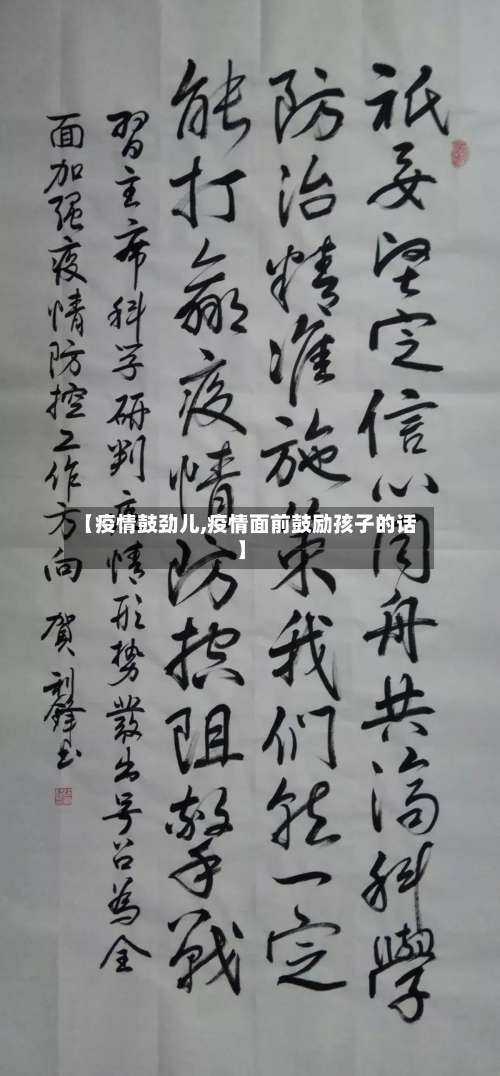 祇要坚定信心同舟共济科學
防治精准施策我们就一定
能打赢疫情防控阻擊戰
習主席科学研判疫情形势發出号召為全
面加强疫情防控工作方向 賀利鋒书
【疫情鼓劲儿,疫情面前鼓励孩子的话
】